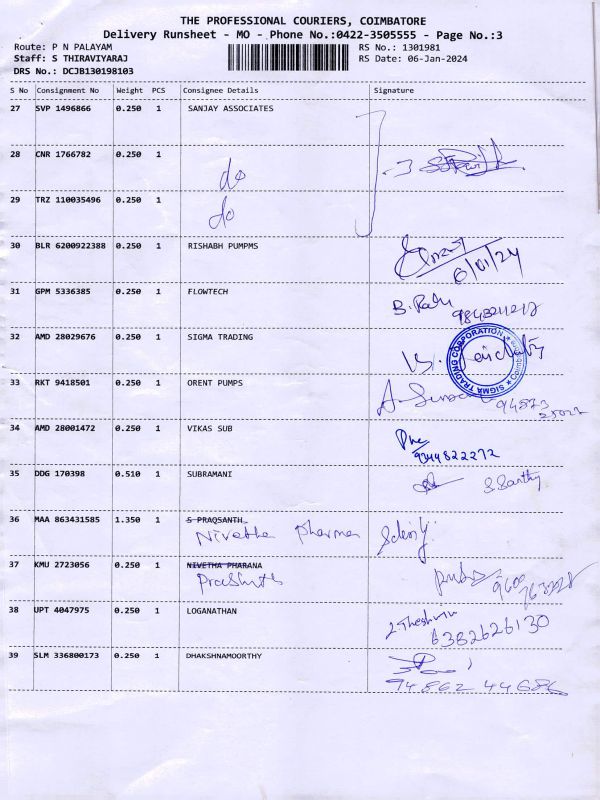 THE PROFESSIONAL COURIERS, COIMBATORE
Delivery Runsheet - MO - Phone No.:0422-3505555 - Page No.:3
Route: P N PALAYAM RS No.: 1301981
Staff: S THIRAVIYARAJ RS Date: 06-Jan-2024
DRS No.: DCJB130198103
S No Consignment No Weight PCS Consignee Details Signature
27 SVP 1496866 0.250 1 SANJAY ASSOCIATES
28 CNR 1766782 0.250 1 do
29 TRZ 110035496 0.250 1 do
30 BLR 6200922388 0.250 1 RISHABH PUMPMS
6/01/24
31 GPM 5336385 0.250 1 FLOWTECH
B.
32 AMD 28029676 0.250 1 SIGMA TRADING
SIGMA TRADING CORPORATION
33 RKT 9418501 0.250 1 ORENT PUMPS
34 AMD 28001472 0.250 1 VIKAS SUB
9344822272
35 DDG 170398 0.510 1 SUBRAMANI
36 MAA 863431585 1.350 1 S PRAQSANTH
Nivetha pharma
37 KMU 2723056 0.250 1 NIVETHA PHARANA
38 UPT 4047975 0.250 1 LOGANATHAN
6382626130
39 SLM 336800173 0.250 1 DHAKSHNAMOORTHY
94862 44686